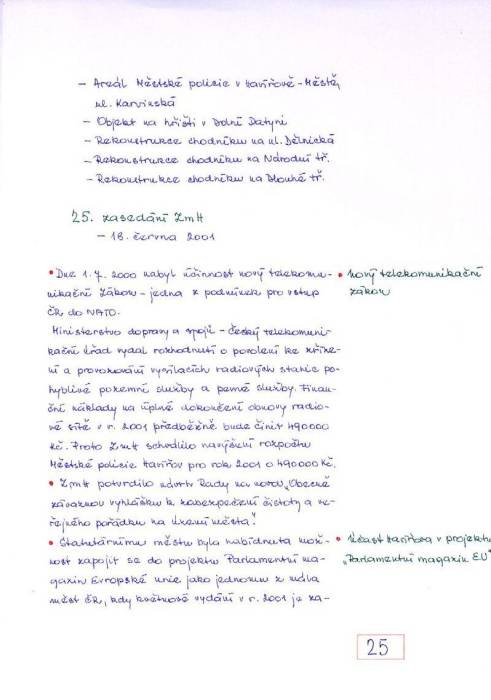 – Areál Městské policie v Havířově-Městě,
ul. Karvinská
– Objekt na hřišti v Dolní Datyni
– Rekonstrukce chodníku na ul. Dělnická
– Rekonstrukce chodníku na Národní tř.
– Rekonstrukce chodníku na Dlouhé tř.
25. zasedání ZmH
– 18. června 2001
• Dne 1. 7. 2000 nabyl účinnost nový telekomu-
nikační zákon – jedna z podmínek pro vstup
ČR do NATO.
• nový telekomunikační
zákon
Ministerstvo dopravy a spojů – Český telekomuni-
kační úřad vydal rozhodnutí o povolení ke zříze-
ní a provozování vysílacích radiových stanic po-
hyblivé pozemní služby a pevné služby. Finan-
ční náklady na úplné dokončení obnovy radio-
vé sítě v r. 2001 předběžně bude činit 490000
Kč. Proto ZmH schválilo navýšení rozpočtu
Městské policie Havířov pro rok 2001 o 490000 Kč.
• ZmH potvrdilo návrh Rady na novou „Obecně
závaznou vyhlášku k zabezpečení čistoty a ve-
řejného pořádku na území města“.
• Statutárnímu městu byla nabídnuta mož-
nost zapojit se do projektu Parlamentní ma-
gazín Evropské unie jako jednomu z mála
měst ČR, kdy květnové vydání v r. 2001 je za-
• Účast Havířova v projektu
„Parlamentní magazín EU“
25